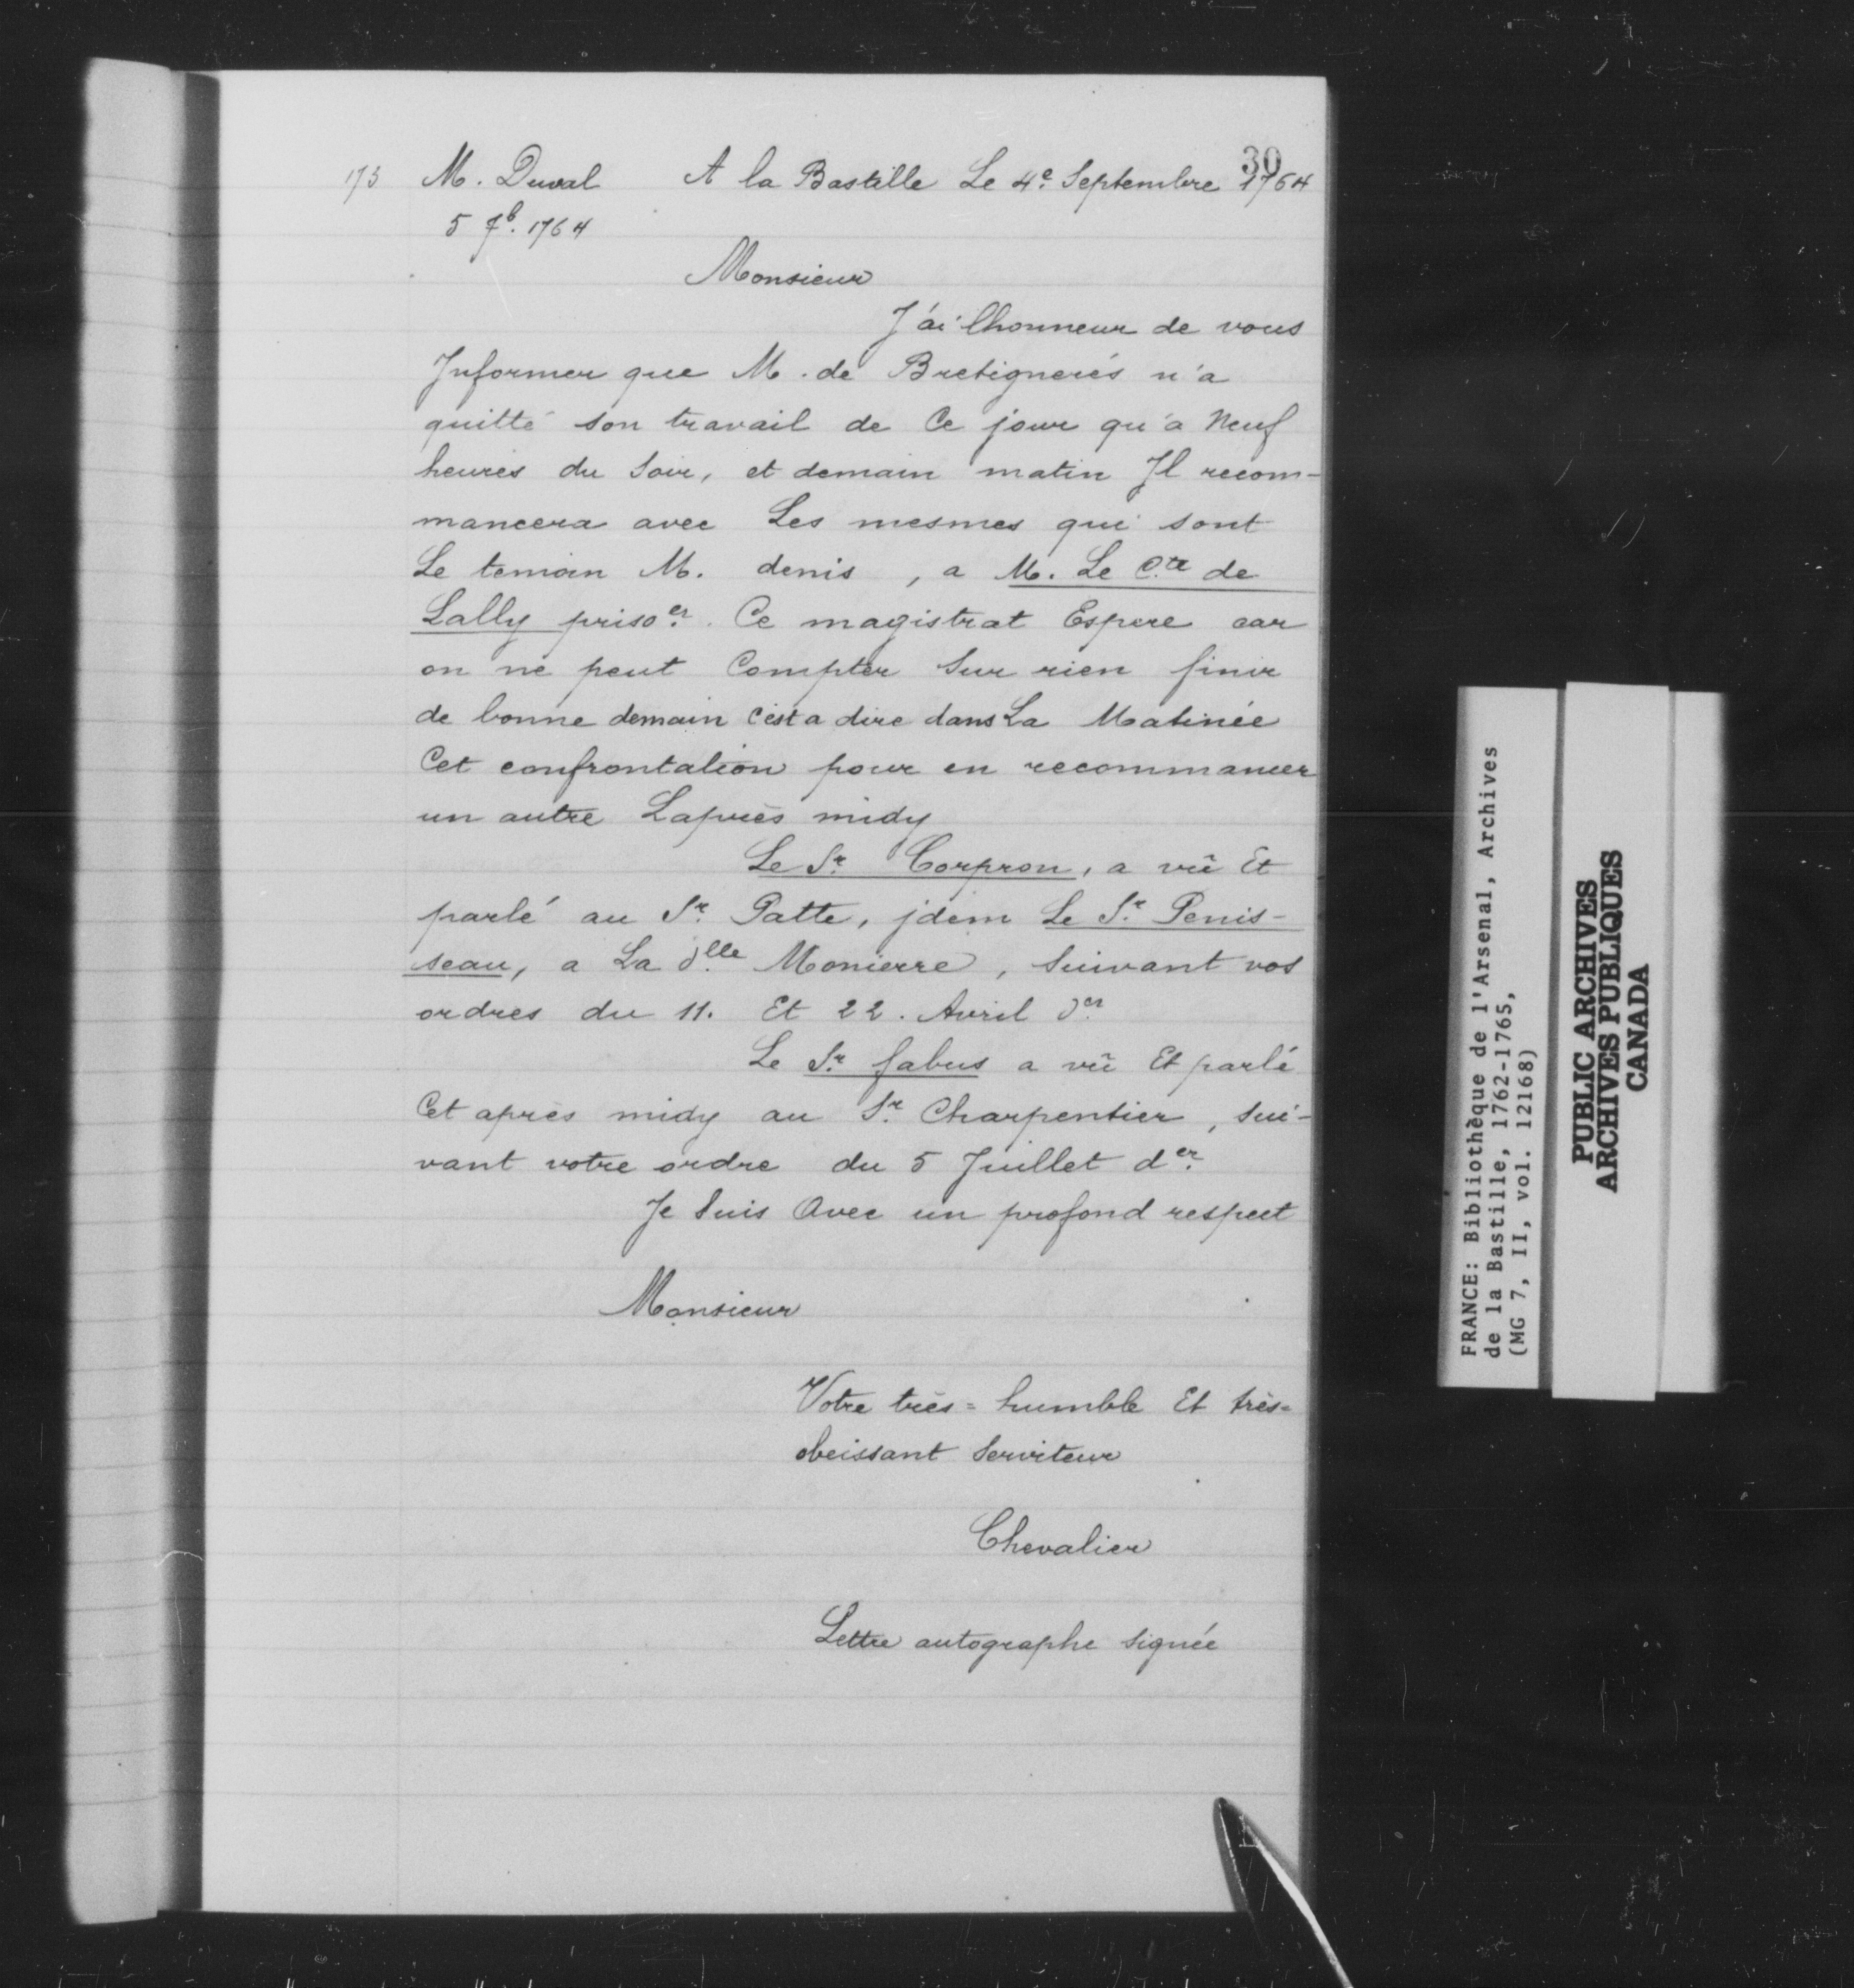 30
173 M. Duval A la Bastille Le 4e Septembre 1764
5 7b. 1764
Monsieur
J'ai lhonneur de vous
Informer que M. de Bretignerés n'a
quitté son travail de Ce jour qu'a Neuf
heures du Soir, et demain matin Il recom-
mancera avec Les mesmes qui sont
Le temoin M. denis, a M. Le Cte de
Lally prisoer. Ce magistrat Espere car
on ne peut Compter Sur rien finir
de bonne demain C'est a dire dans La Matinée
Cet confrontation pour en recommancer
un autre Laprès midy
Le Sr Corpron, a vû Et
parlé au Sr. Patte, jdem Le Sr. Penis-
seau, a La dlle Monierre, Suivant vos
ordres du 11. Et 22. Avril der
Le Sr. fabus a vû Et parlé
Cet après midy au Sr. Charpentier, Sui-
vant votre ordre du 5 Juillet der.
Je Suis Avec un profond respect
Monsieur
Votre très = humble Et très=
obeissant Serviteur
Chevalier
Lettre autographe signée
FRANCE: Bibliothèque de l'Arsenal, Archives
de la Bastille, 1762-1765,
(MG 7, II, vol. 12168)
PUBLIC ARCHIVES
ARCHIVES PUBLIQUES
CANADA